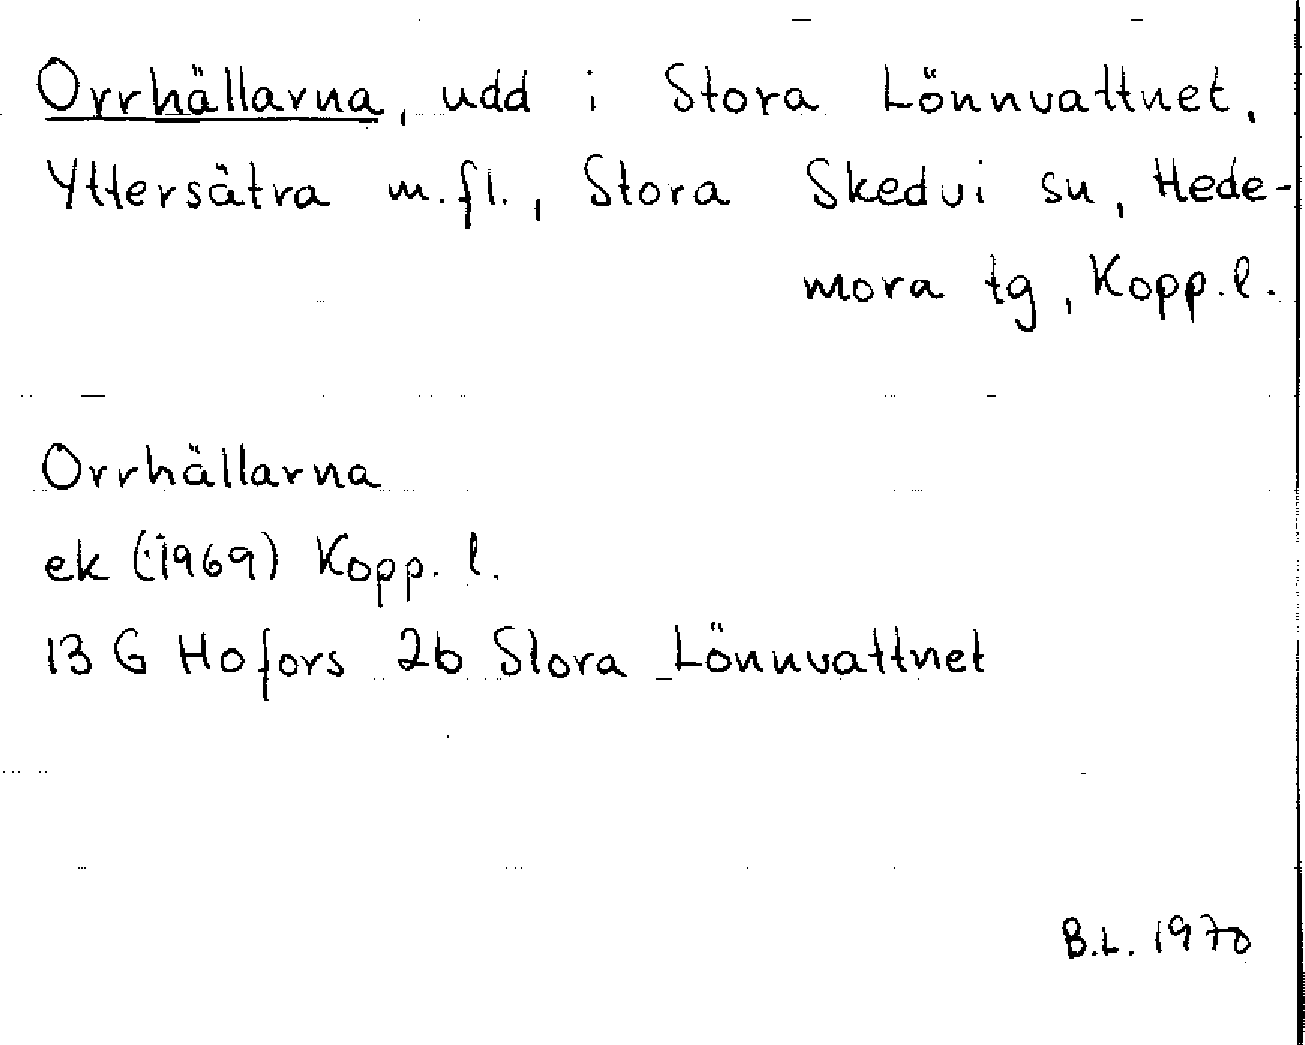 Orrhällarna, udd i Stora Lönnvattnet,
Yttersätra m.fl., Stora Skedvi sn, Hede-
mora tg, Kopp.l.
Orrhällarna
ek (1969) Kopp. l.
13 G Hofors 2b Stora Lönnvattnet
B.L. 1970